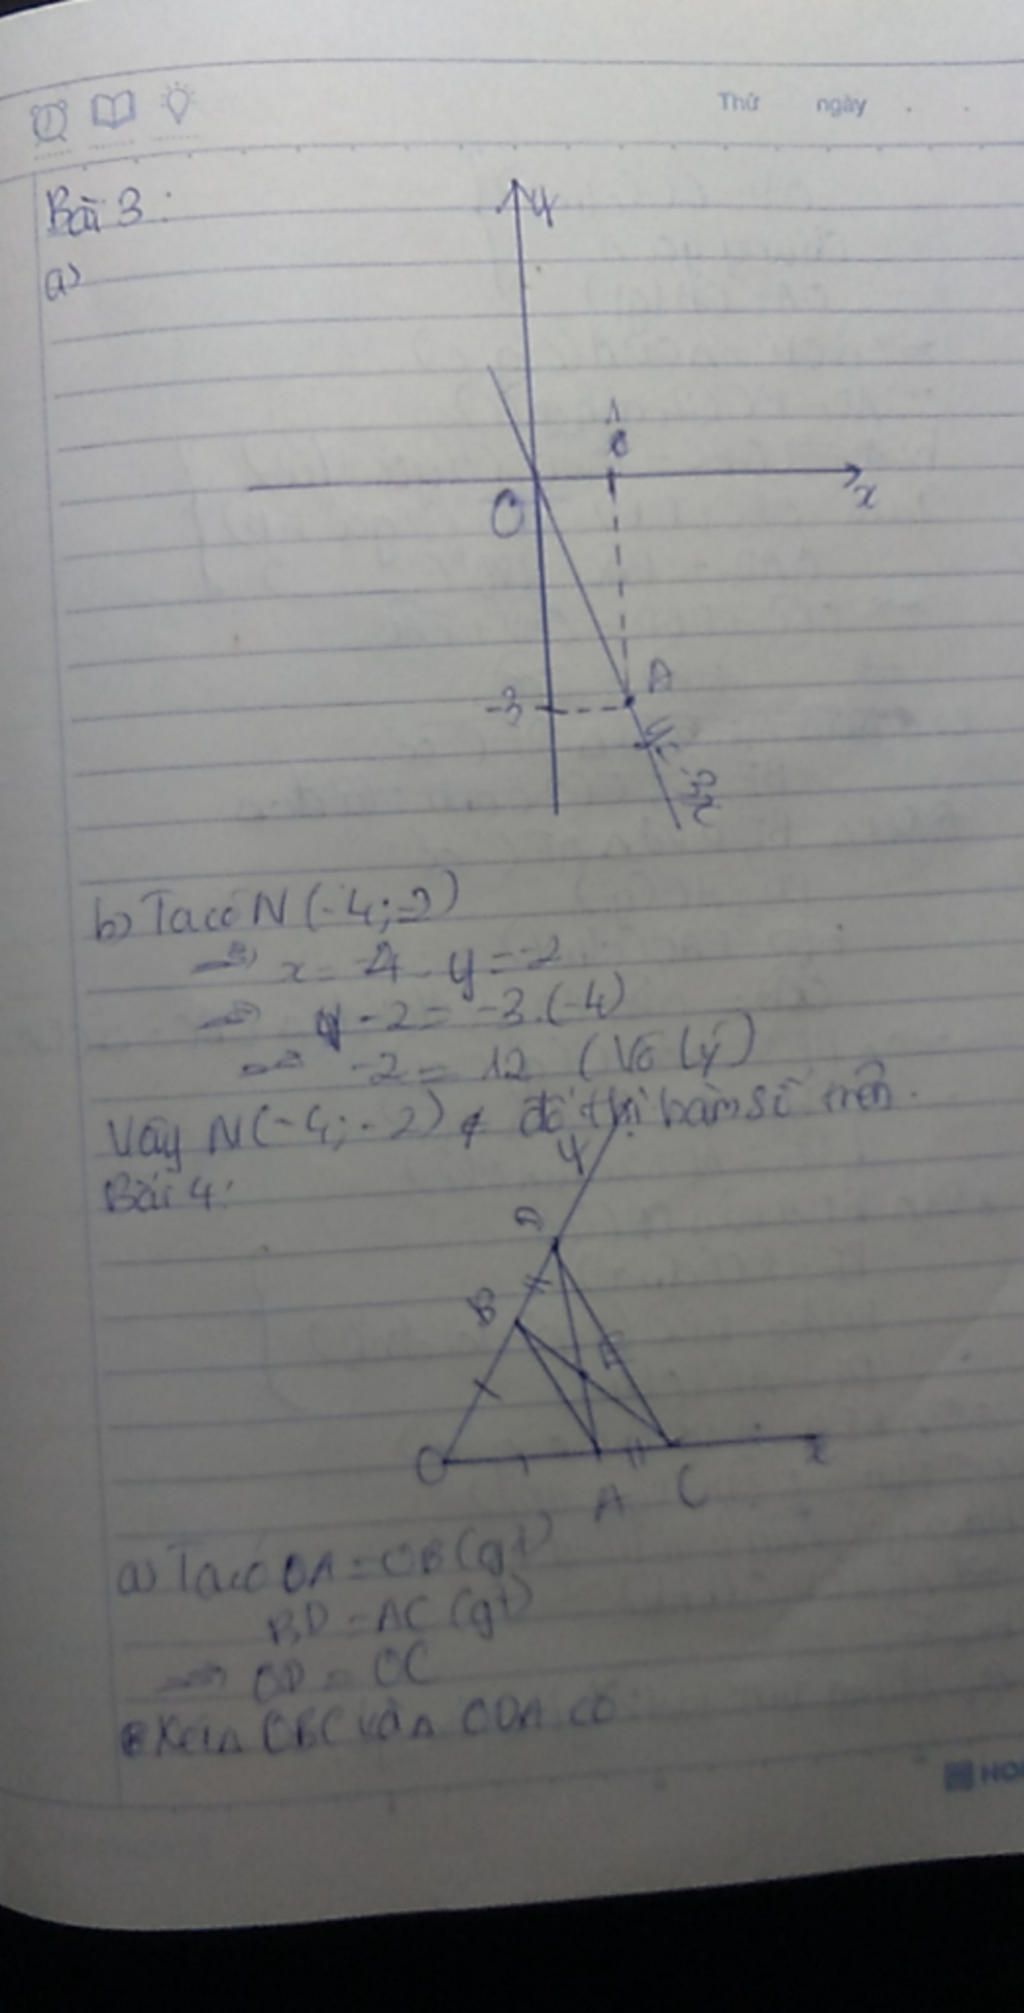 Thứ ngày
Bài 3:
a)
y
1
x
O
A
-3
y=-3x
b) Ta có N(-4;-2)
=> x=-4 y=-2
=> -2=-3.(-4)
=> -2=12 (Vô lý)
Vậy N(-4;-2) ∉ đồ thị hàm số trên.
Bài 4:
y
D
B
E
O
A
C
x
a) Ta có OA=OB(gt)
BD=AC(gt)
=> OD=OC
Xét Δ OBC và Δ ODA có